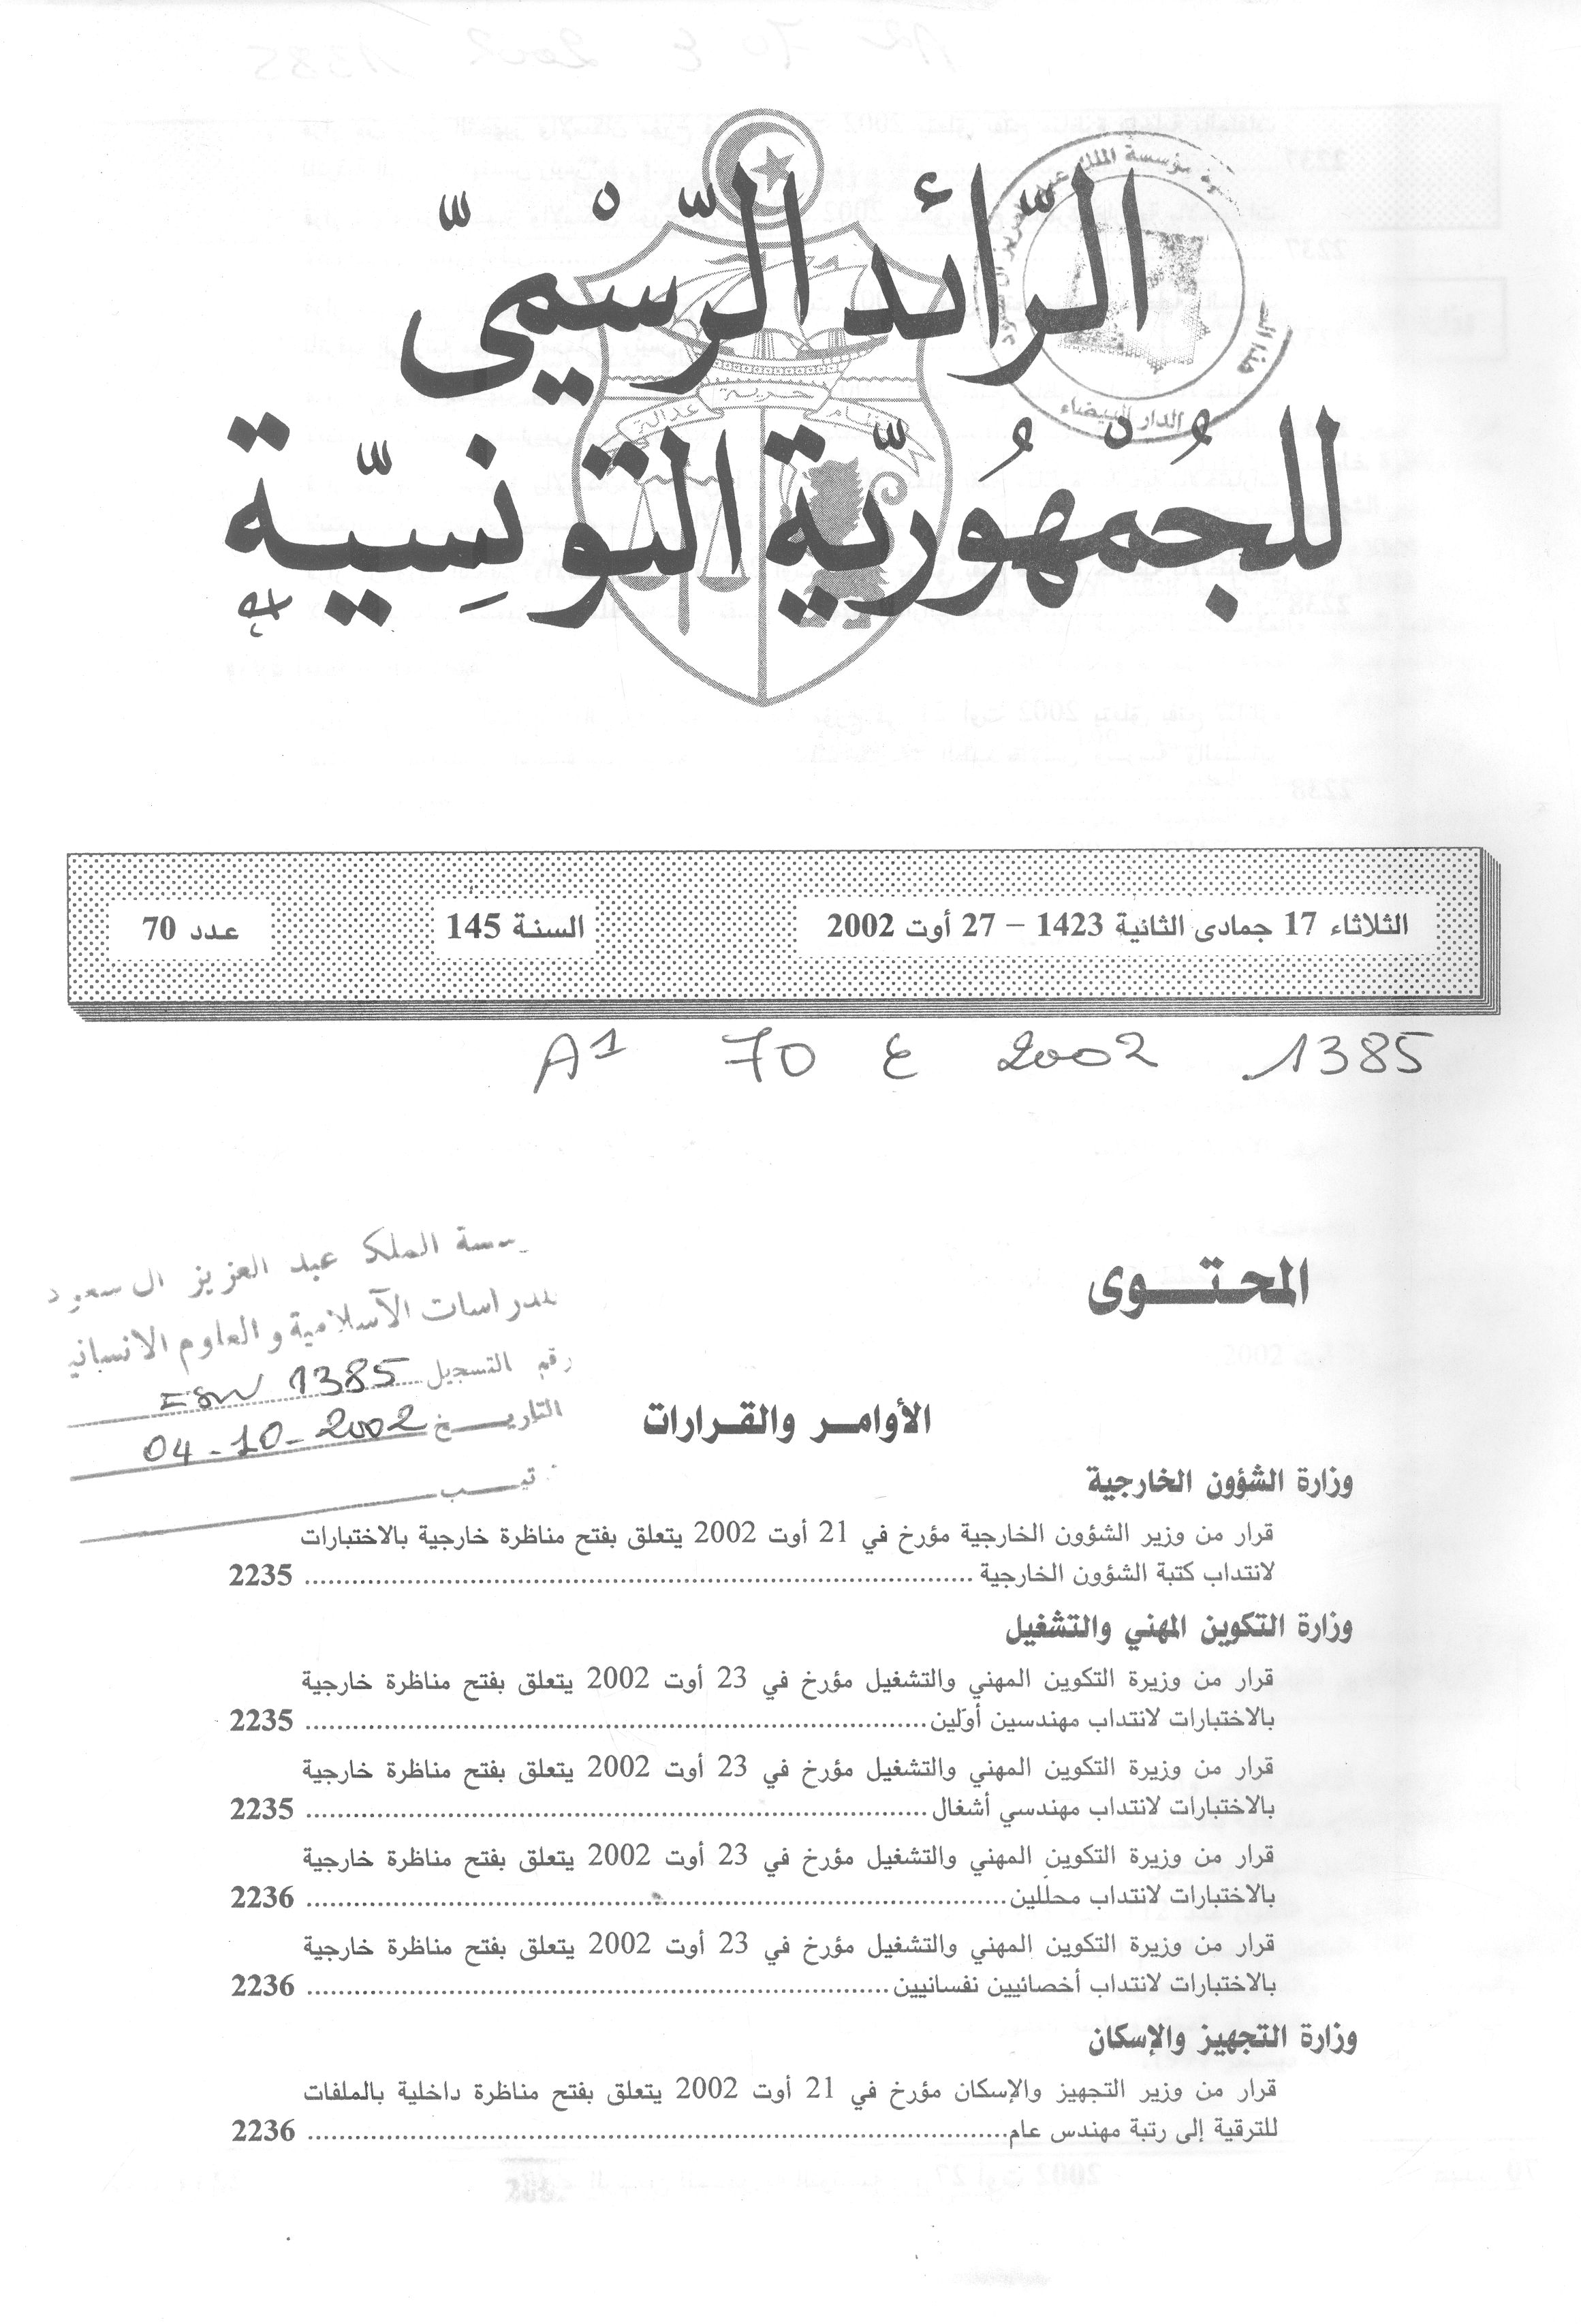 الرّائد الرّسْميّ
للجُمْهُوريّة التّونِسيّة
نظام حرية عدالة
مؤسسة الملك عبد العزيز آل سعود
الدار البيضاء
الثلاثاء 17 جمادى الثانية 1423 – 27 أوت 2002
السنة 145
عدد 70
A1 70 ع 2002 1385
سسة الملك عبد العزيز ال سعود
للدراسات الآسلامية والعلوم الانسانية
رقم التسجيل ESW 1385
التاريخ 04-10-2002
المحتوى
الأوامر والقرارات
وزارة الشؤون الخارجية
قرار من وزير الشؤون الخارجية مؤرخ في 21 أوت 2002 يتعلق بفتح مناظرة خارجية بالاختبارات
لانتداب كتبة الشؤون الخارجية ........ 2235
وزارة التكوين المهني والتشغيل
قرار من وزيرة التكوين المهني والتشغيل مؤرخ في 23 أوت 2002 يتعلق بفتح مناظرة خارجية
بالاختبارات لانتداب مهندسين أولين ........ 2235
قرار من وزيرة التكوين المهني والتشغيل مؤرخ في 23 أوت 2002 يتعلق بفتح مناظرة خارجية
بالاختبارات لانتداب مهندسي أشغال ........ 2235
قرار من وزيرة التكوين المهني والتشغيل مؤرخ في 23 أوت 2002 يتعلق بفتح مناظرة خارجية
بالاختبارات لانتداب محللين ........ 2236
قرار من وزيرة التكوين المهني والتشغيل مؤرخ في 23 أوت 2002 يتعلق بفتح مناظرة خارجية
بالاختبارات لانتداب أخصائيين نفسانيين ........ 2236
وزارة التجهيز والإسكان
قرار من وزير التجهيز والإسكان مؤرخ في 21 أوت 2002 يتعلق بفتح مناظرة داخلية بالملفات
للترقية إلى رتبة مهندس عام ........ 2236